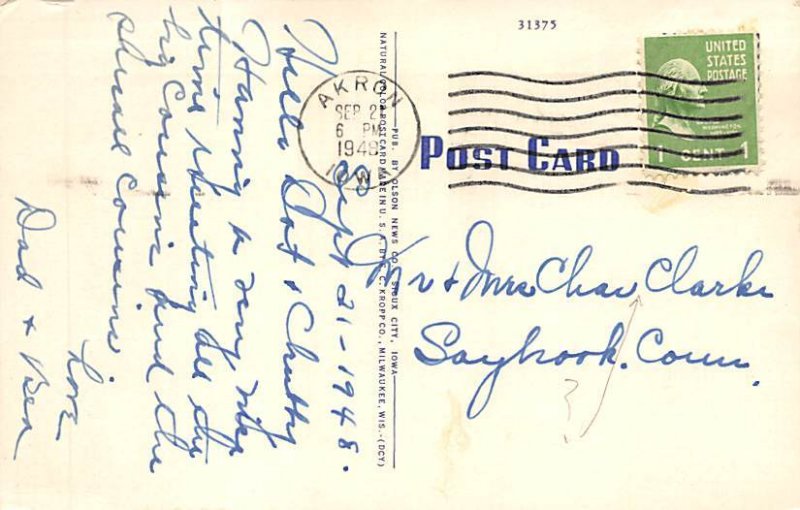 31375
UNITED
STATES
POSTAGE
WASHINGTON
1 CENT 1
AKRON
SEP 2
6 PM
1948
IOWA
POST CARD
PUB. BY OLSON NEWS CO., SIOUX CITY, IOWA
NATURAL COLOR POST CARD MADE IN U. S. A. BY E. C. KROPP CO., MILWAUKEE, WIS.-(DCY)
Sept 21-1948.
Hello Dot & Chubby
Having a very nice
time visiting all the
big Cousins and the
small Cousins.
Love
Dad & Bea
Mr & Mrs Chas Clarke
Saybrook. Conn.
?